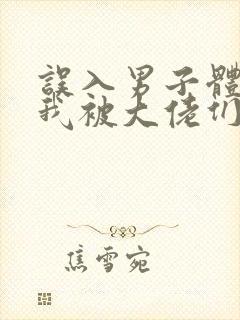 誤入男子體
我被大佬们
焦雪宛